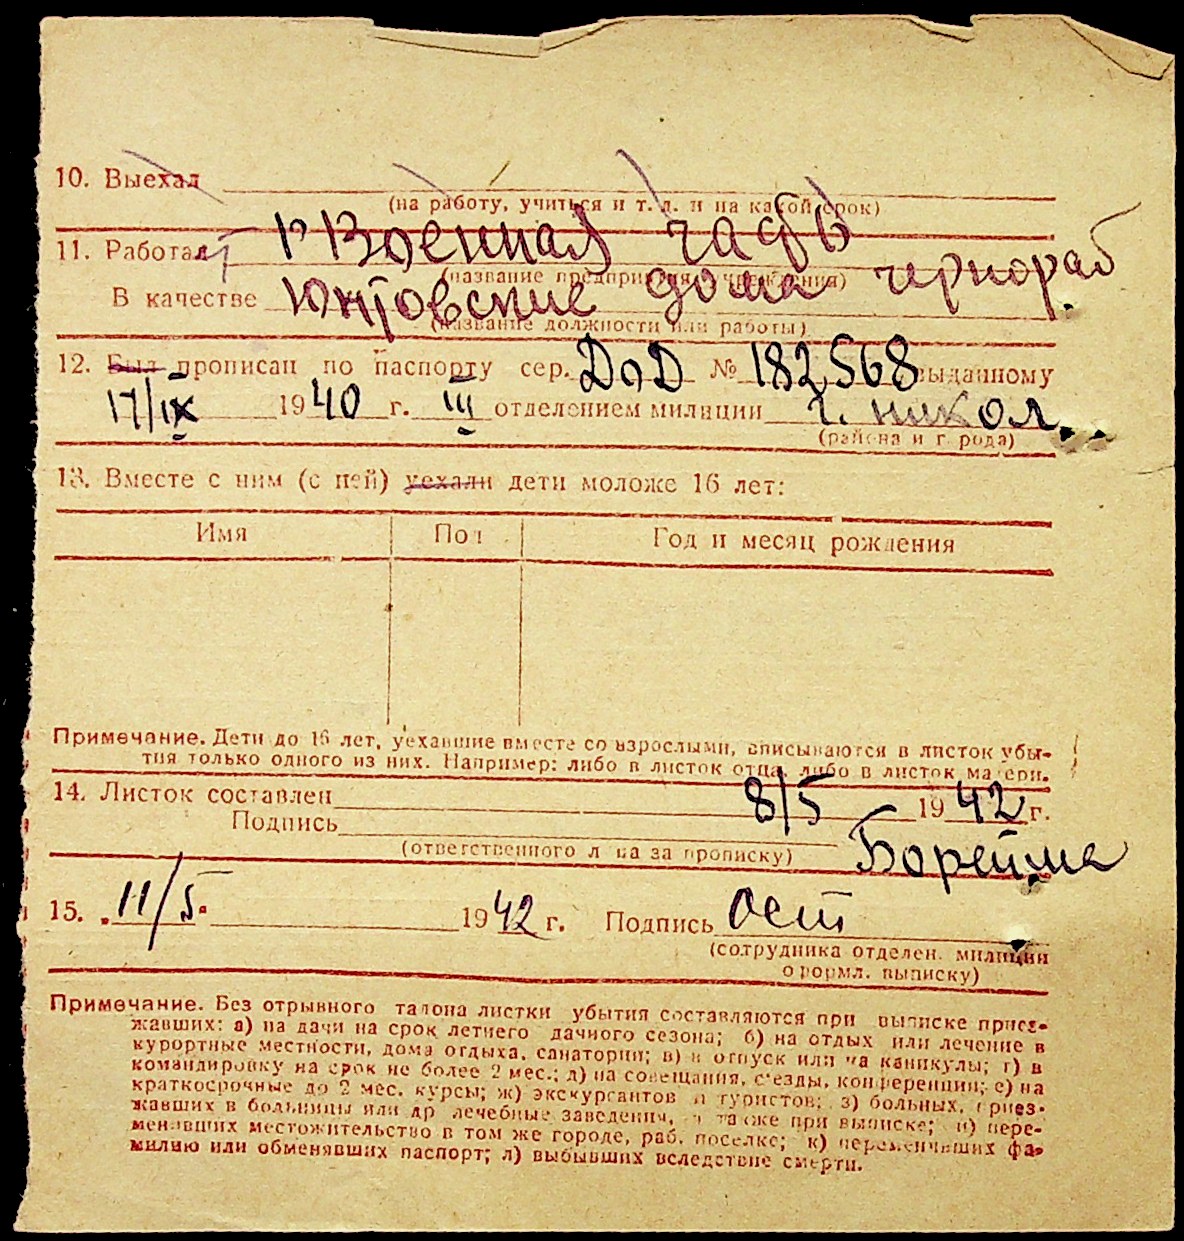 10. Выехал
(на работу, учиться и т. д. и на какой срок)
11. Работает Военная часть
(название предприятия, учреждения)
В качестве Юнтовские дома чернораб
(название должности или работы)
12. Был прописан по паспорту сер. ДоД № 182568 выданному
17/IX 1940 г. III отделением милиции г. никол.
(района и города)
13. Вместе с ним (с ней) уехали дети моложе 16 лет:
Имя Пол Год и месяц рождения
Примечание. Дети до 16 лет, уехавшие вместе со взрослыми, вписываются в листок убы-
тия только одного из них. Например: либо в листок отца, либо в листок матери.
14. Листок составлен 8/5 1942 г.
Подпись Борейша
(ответственного лица за прописку)
15. 11/5. 1942 г. Подпись Ост
(сотрудника отделен. милиции
оформл. выписку)
Примечание. Без отрывного талона листки убытия составляются при выписке приез-
жавших: а) на дачи на срок летнего дачного сезона; б) на отдых или лечение в
курортные местности, дома отдыха, санатории; в) в отпуск или на каникулы; г) в
командировку на срок не более 2 мес.; д) на совещания, съезды, конференции; е) на
краткосрочные до 2 мес. курсы; ж) экскурсантов и туристов; з) больных, приез-
жавших в больницы или др лечебные заведения, а также при выписке; и) пере-
менявших местожительство в том же городе, раб. поселке; к) переменивших фа-
милию или обменявших паспорт; л) выбывших вследствие смерти.